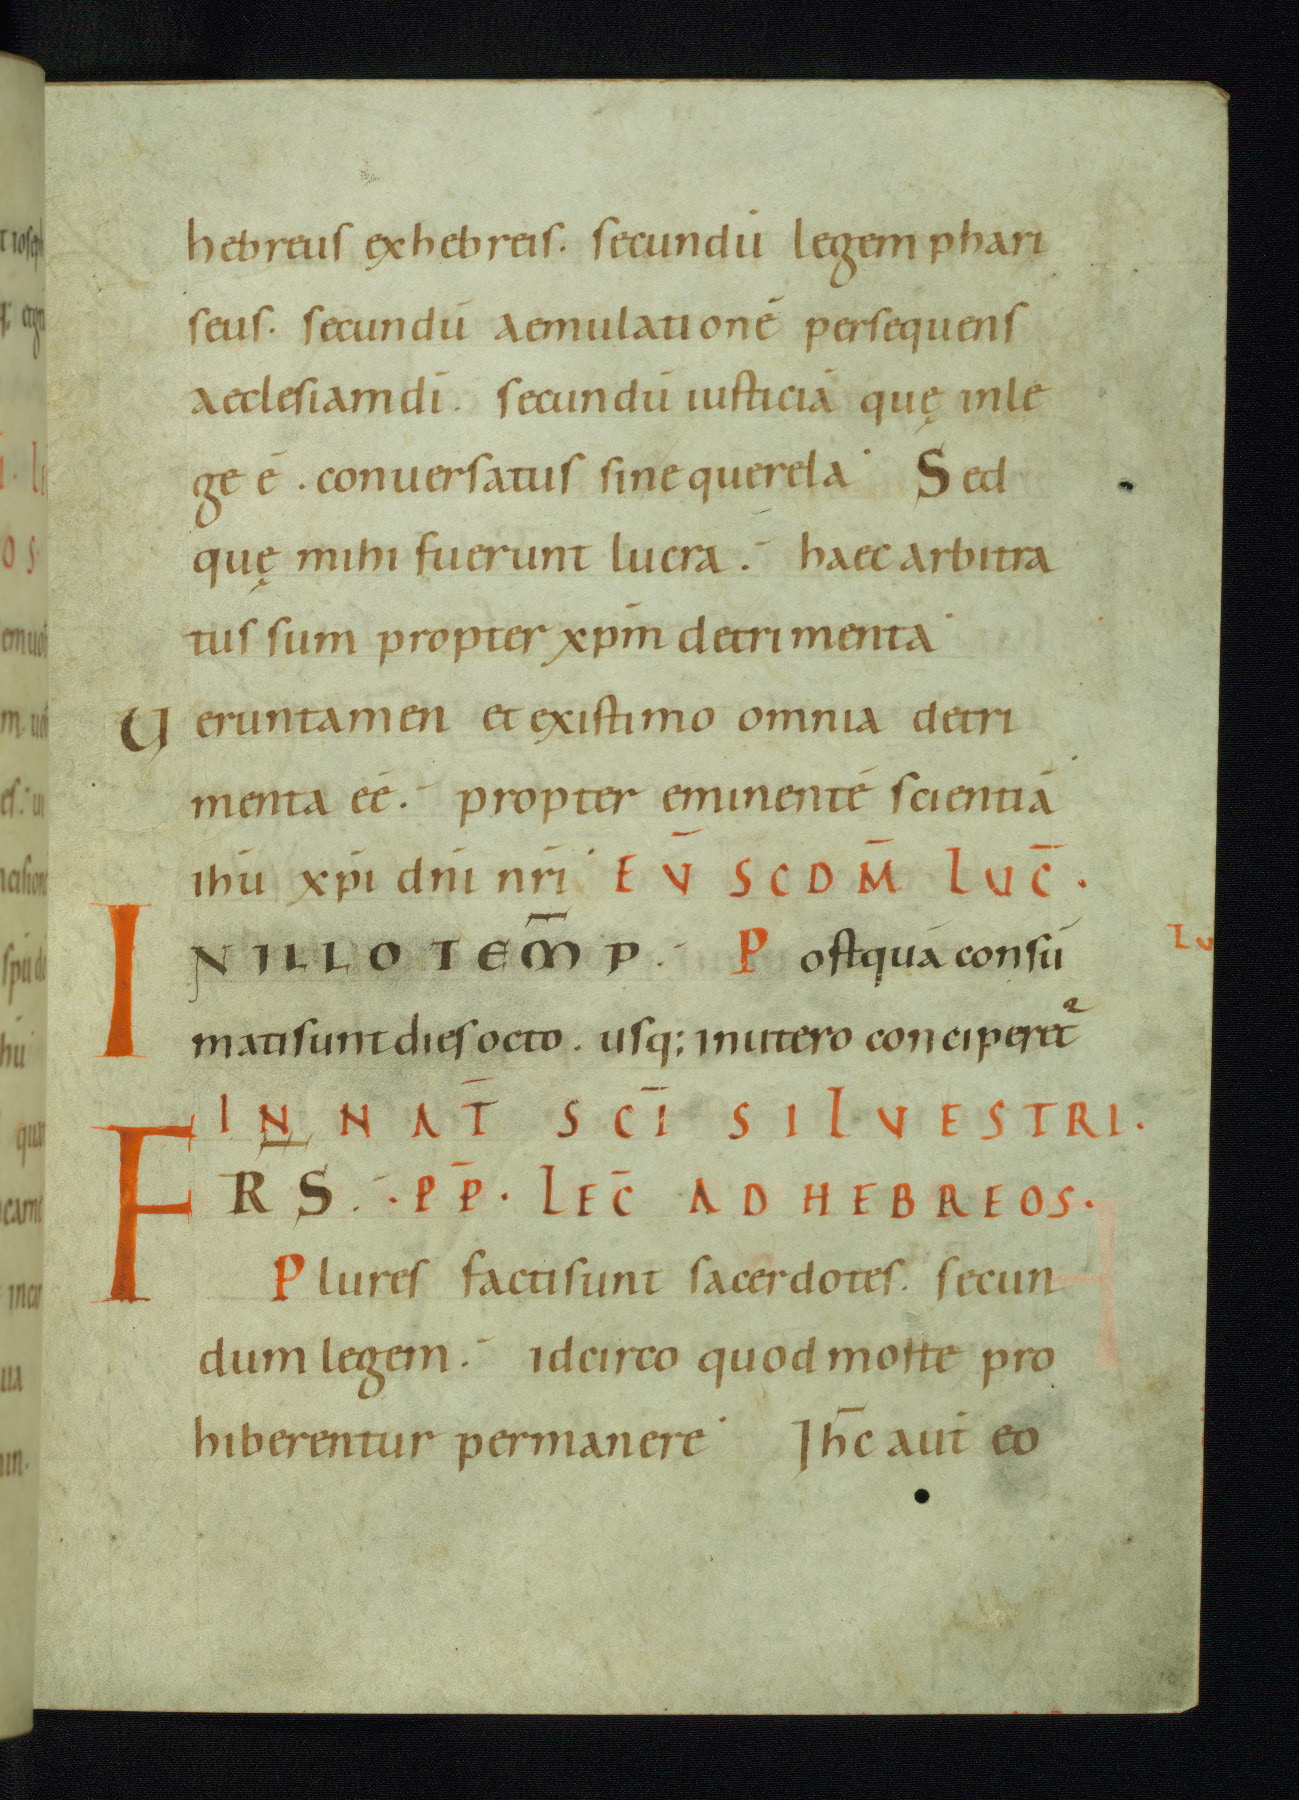 hebreus exhebreis. secundū legem phari
seus. secundū aemulationē persequens
aeclesiam dī. secundū iusticiā quę inle
ge ē. conuersatus sine querela Sed
quę mihi fuerunt lucra. haec arbitra
tus sum propter xp̄m detrimenta
Ueruntamen et existimo omnia detri
menta eē. propter eminentē scientiā
ihū xp̄i dn̄i nr̄i EṼ SCDM̄ LUC̄.
IN ILLO TEM̄P. Postquā consū
mati sunt dies octo. usq; inutero conciperet²
IN NAT̄ SCĪ SILVESTRI.
FRS. PP̄. LEC̄ AD HEBREOS.
Plures facti sunt sacerdotes. secun
dum legem. idcirco quod morte pro
hiberentur permanere Ih̄c aut̄ eo